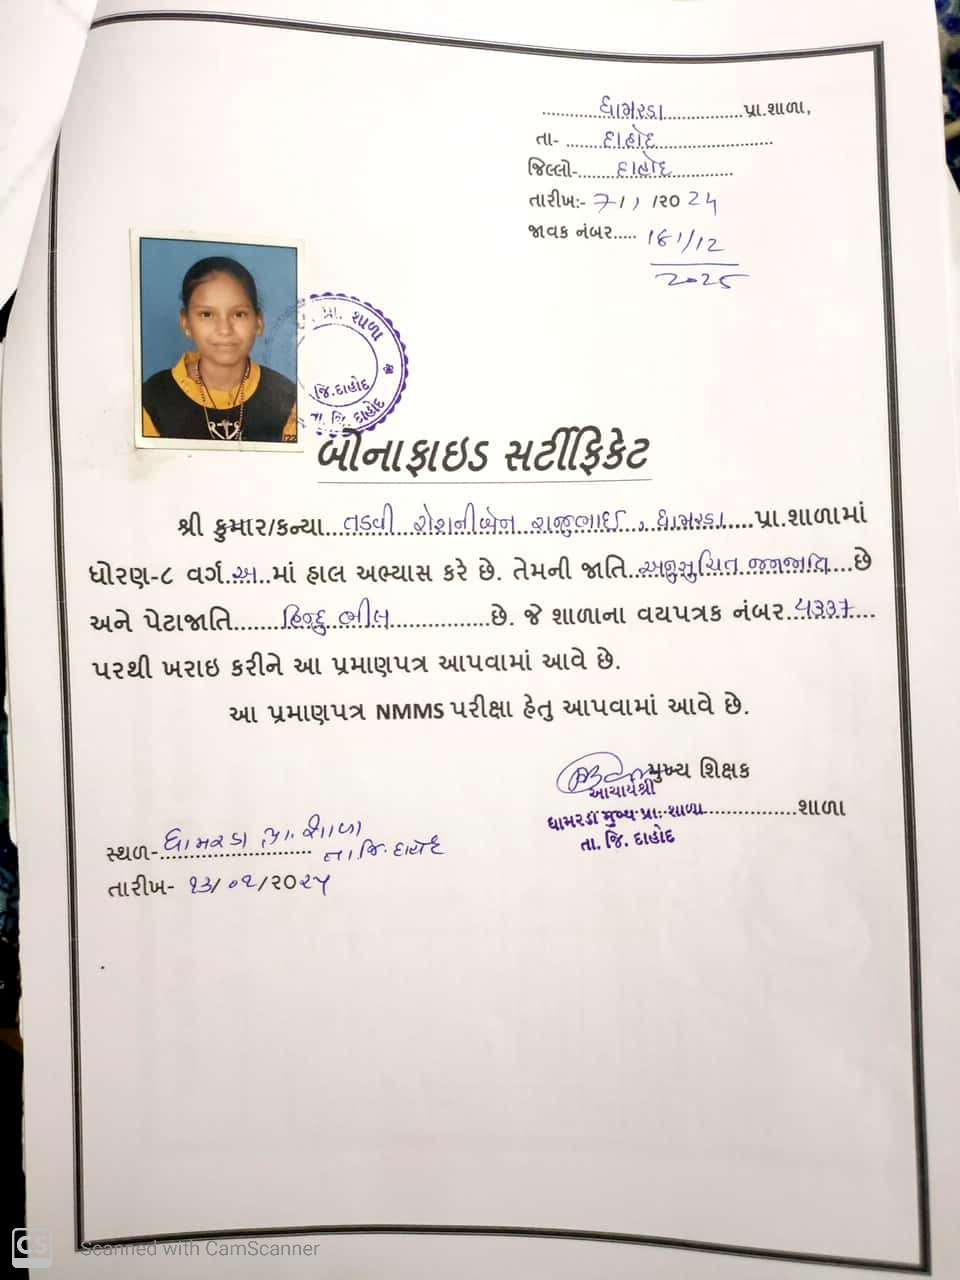 ધામરડા પ્રા.શાળા,
તા- દાહોદ
જિલ્લો- દાહોદ
તારીખ:- 7/1/20 24
જાવક નંબર..... 181/12
2025
પ્રા. શાળા
જિ.દાહોદ
તા. જિ. દાહોદ
બોનાફાઇડ સર્ટીફિકેટ
શ્રી કુમાર/કન્યા...તડવી રોશનીબેન રાજુભાઈ, ધામરડા....પ્રા.શાળામાં
ધોરણ-૮ વર્ગ.અ..માં હાલ અભ્યાસ કરે છે. તેમની જાતિ..અનુસુચિત જનજાતિ...છે
અને પેટાજાતિ.......હિન્દુ ભીલ.............છે. જે શાળાના વયપત્રક નંબર..4337....
પરથી ખરાઇ કરીને આ પ્રમાણપત્ર આપવામાં આવે છે.
આ પ્રમાણપત્ર NMMS પરીક્ષા હેતુ આપવામાં આવે છે.
મુખ્ય શિક્ષક
આચાર્યશ્રી
ધામરડા મુખ્ય પ્રા. શાળા................શાળા
તા. જિ. દાહોદ
સ્થળ-ધામરડા પ્રા. શાળા
તા. જિ. દાહોદ
તારીખ- ૧૩/૦૧/૨૦૨૫
CS Scanned with CamScanner